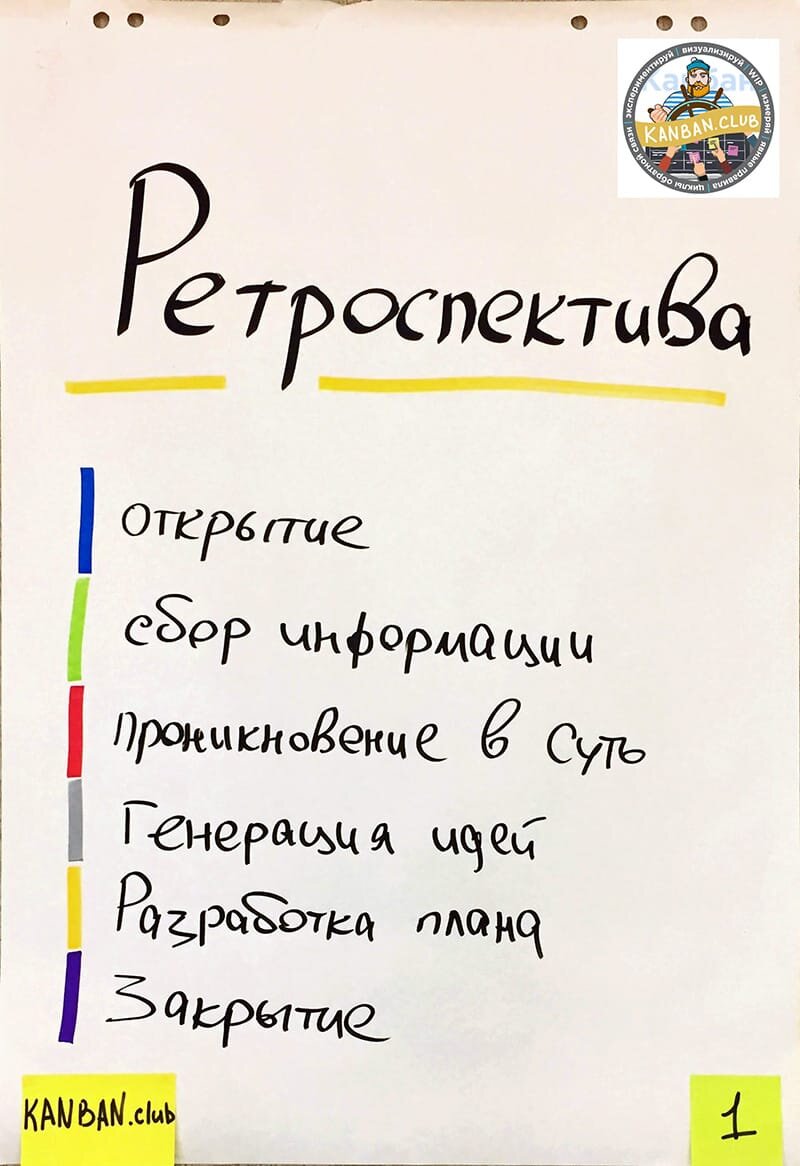 Канбан
экспериментируй | визуализируй | WIP | измеряй | явные правила | циклы обратной связи |
KANBAN.CLUB
Ретроспектива
открытие
сбор информации
проникновение в суть
Генерация идей
Разработка плана
Закрытие
KANBAN.club
1